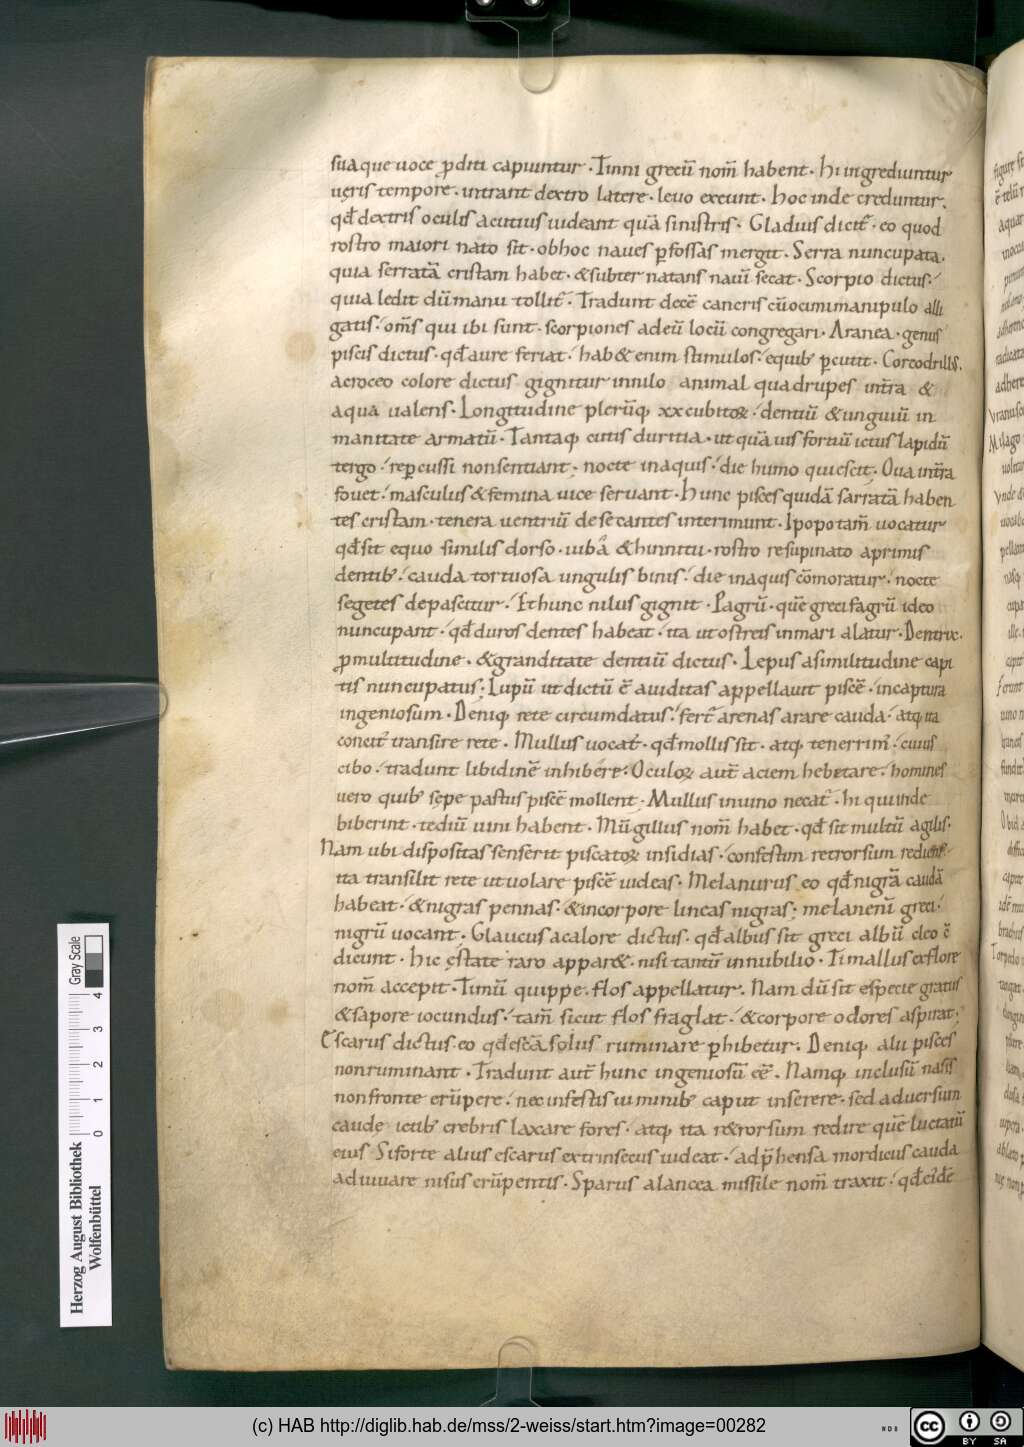 suaque uoce ꝓditi capiuntur · Tinni grecū nom̄ habent · hi ingrediuntur
uęris tempore · intrant dextro latere · leuo exeunt · hoc inde creduntur ·
qđ dextris oculis acutius uideant quā sinistris · Gladius dicit̄ · eo quod
rostro maiori nato sit · obhoc naues ꝑfossas mergit · Serra nuncupata ·
quia serratā cristam habet · & subter natans nauī secat · Scorpio dictus ·
quia ledit dū manu tollit̄ · Tradunt decē cancris cū ocimi manipulo alli
gatis · om̄s qui ibi sunt · scorpiones ad eū locū congregari · Aranea · genus
piscis dictus · qđ aure feriat · hab& enim stimulos · equib; ꝑcutit · Corcodrillus ·
acroceo colore dictus gignitur innilo animal quadrupes int̄ra &
aqua ualens · Longitudine plerūq; xx cubitoꝝ · dentiū & unguiū in
manitate armatū · Tantaq; cutis duritia · ut quāuis fortiū ictus lapidū
tergo · reꝑcussi nonsentiant · nocte inaquis · die humo quiescit · Oua int̄ra
fouet · masculus & femina uice seruant · hunc pisces quidā sarratā haben
tes cristam · tenera uentriū desecantes interimunt · Ipopotam̄ uocatur
qđ sit equo similis dorso · iubā & hinnitu · rostro resupinato aprimis
dentib; · cauda tortuosa ungulis binis · die inaquis cōmoratur · nocte
segetes depascitur · Et hunc nilus gignit · Pagrū · quē greci fagrū ideo
nuncupant · qđ duros dentes habeat · ita ut ostreis inmari alatur · Dentrix ·
ꝓmultitudine · & granditate dentiū dictus · Lepus asimilitudine capi
tis nuncupatus; Lupū ut dictū ē auiditas appellauit piscē · incaptura
ingeniosum · Deniq; rete circumdatus · fert̄ arenas arare cauda · atq; ita
condit̄ transire rete · Mullus uocat̄ · qđ mollis sit · atq; tenerrim̄ · cuius
cibo · tradunt libidinē inhibere · Oculoꝝ aut̄ aciem hebetare · homines
uero quib; sępe pastus piscē mollent · Mullus inuino necat̄ · hi qui inde
biberint · tediū uini habent · Mūgillus nom̄ habet · qđ sit multū agilis ·
Nam ubi dispositas senserit piscatoꝝ insidias · confestim retrorsum rediens ·
ita transilit rete ut uolare piscē uideas · Melanurus eo qđ nigrā caudā
habeat · & nigras pennas · & incorpore lineas nigras; melanenū greci ·
nigrū uocant · Glaucus acalore dictus · qđ albus sit greci albū cleo ē
dicunt · hic ęstate raro appar& · nisi tantū innubilio · Timallus exflore
nom̄ accepit · Timū quippe flos appellatur · Nam dū sit especie gratus
& sapore iocundus · tam̄ sicut flos fraglat · & corpore odores aspirat;
Escarus dictus eo qđ escā solus ruminare ꝑhibetur · Deniq; alii pisces
nonruminant · Tradunt aut̄ hunc ingeniosū eē · Namq; inclusū nasis
nonfronte erūpere · nec infestis uiminib; caput inserere · sed aduersum
caude ictib; crebris laxare fores · atq; ita r&rorsum redire quē luctatū
eius Si forte alius escarus extrinsecus uideat · adp̄hensa mordicus cauda
adiuuare nisus erūpentis · Sparus alancea missile nom̄ traxit · qđ eidē
Gray Scale
0 1 2 3 4
Herzog August Bibliothek
Wolfenbüttel
(c) HAB http://diglib.hab.de/mss/2-weiss/start.htm?image=00282
cc BY SA